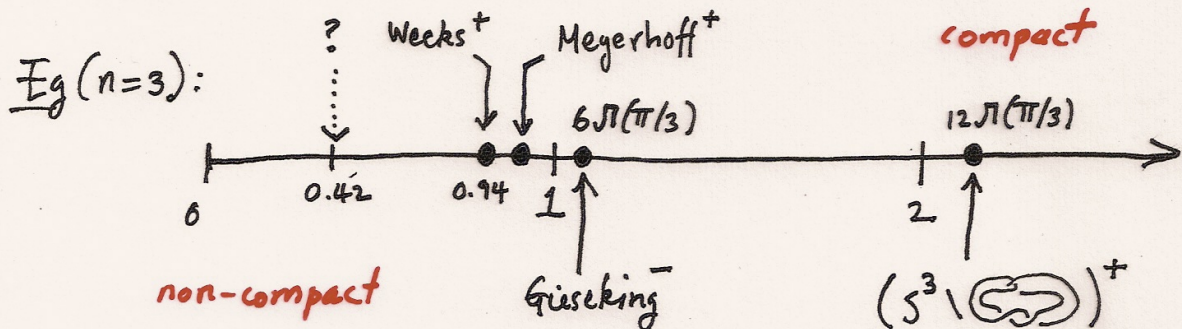 ?
Weeks⁺ Meyerhoff⁺ compact
Eg (n=3):
6Л(π/3) 12Л(π/3)
0 0.42 0.94 1 2
non-compact Gieseking⁻ (S³ \ )⁺